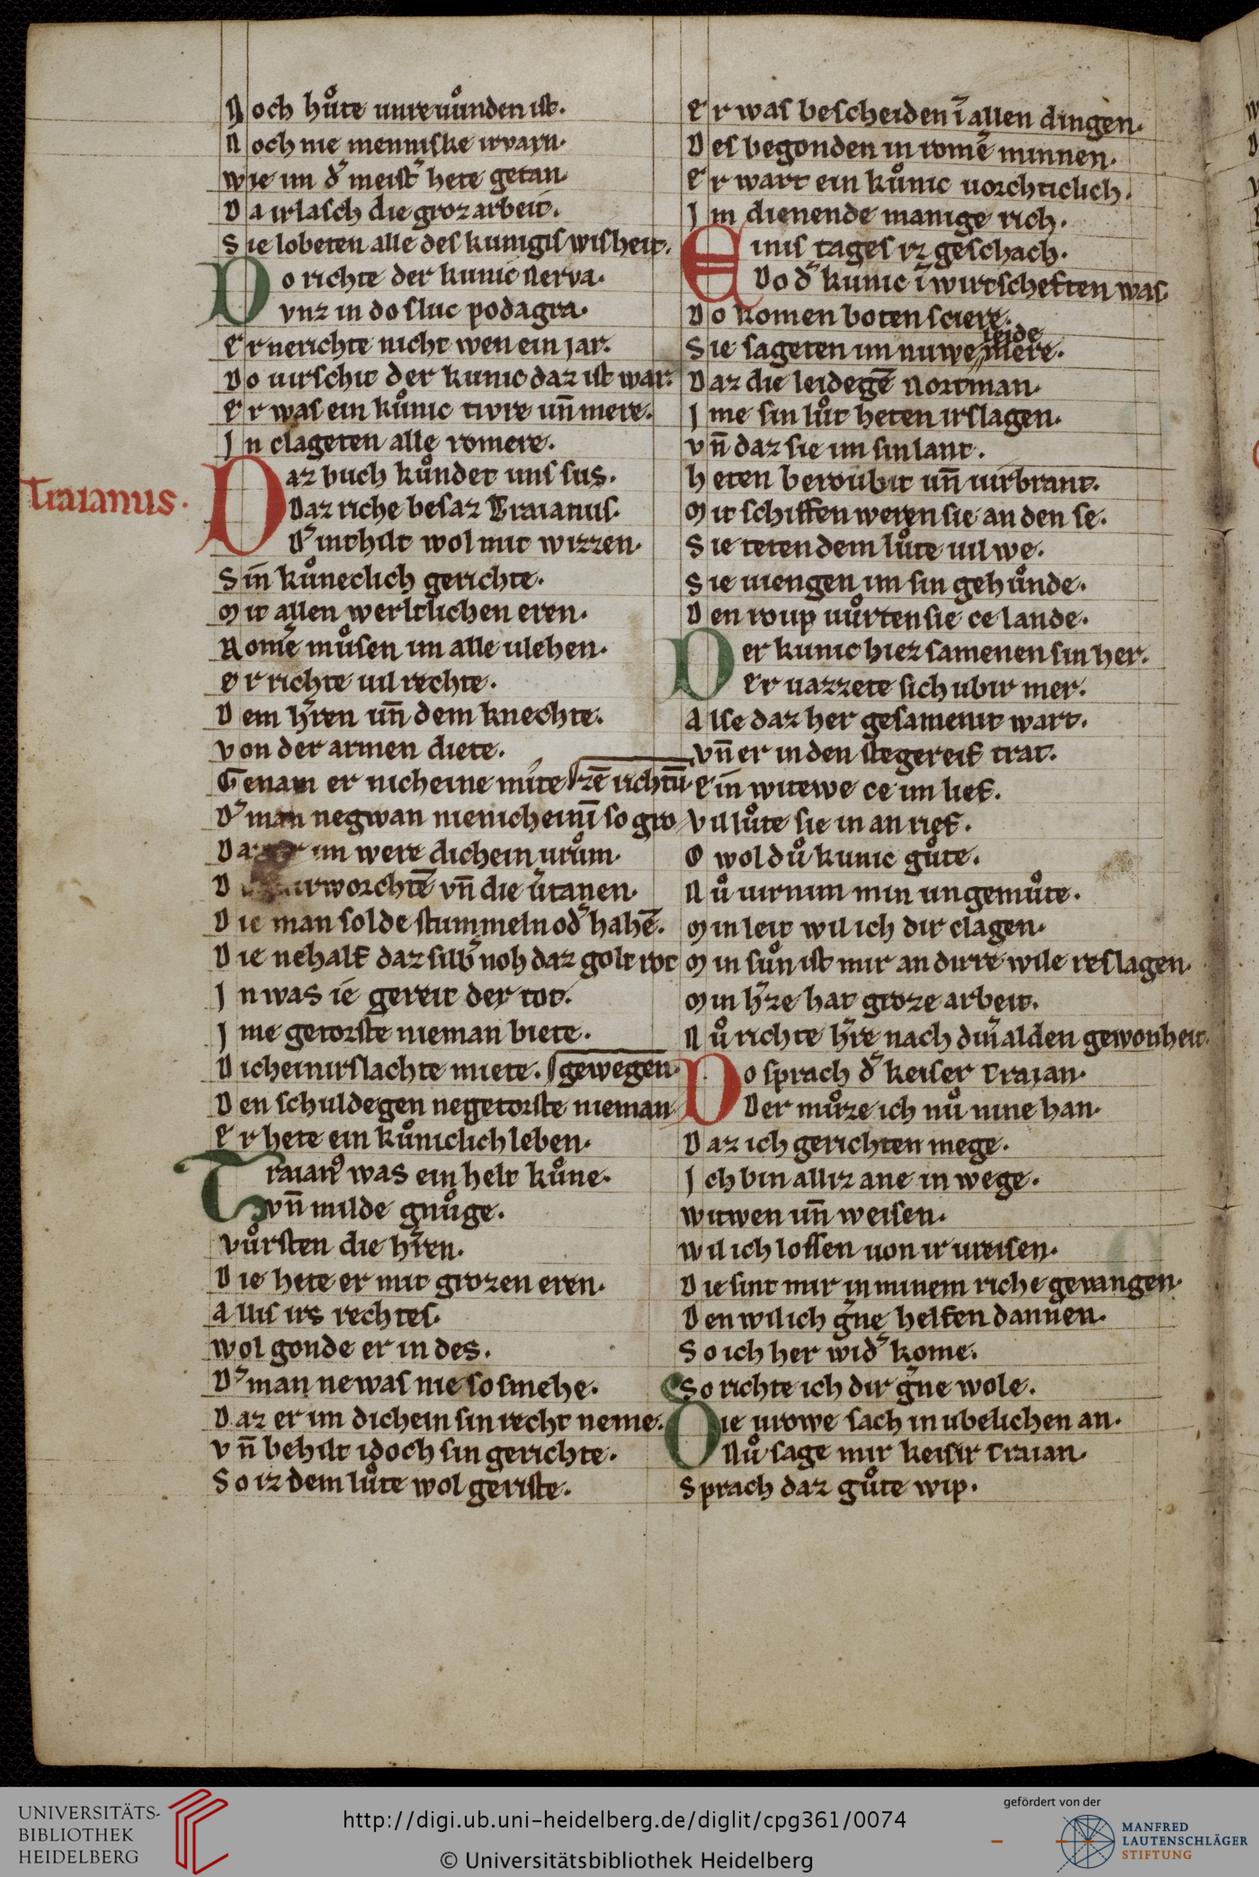 Noch hůte unirvůnden ist.
Noch nie menniske irvarn.
Wie im d᷑ meist᷑ hete getan.
Da irlasch die groz arbeit.
Sie lobeten alle des kunigis wisheit.
Do richte der kunic Nerva.
vnz in do sluc podagra.
Er nerichte nicht wen ein jar.
Do uirschit der kunic daz ist war.
Er was ein kůnic tivre un̄ mere.
In clageten alle romere.
Traianus.
Daz buch kůndet uns sus.
Daz riche besaz Traianus.
D᷑ inthilt wol mit wizzen.
Sin kůneclich gerichte.
Mit allen werltlichen eren.
Rome᷑ můsen im alle vlehen.
Er richte uil rechte.
Dem h᷑ren un̄ dem knechte.
Von der armen diete.
Genam er nicheine miete
D᷑ man negwan nienicheinē so gro zē richtū.
Da im were dichein urům.
D irworchtē vn̄ die v᷑tanen.
Die man solde stummeln od᷑ hahē.
Die nehalf daz silb᷑ noh daz golt rot
In was ie gereit der tot.
Ime getorste nieman biete.
Dicheinirslachte miete.
Den schuldegen negetorste nieman gewegen.
Er hete ein kůniclich leben.
Traian᷒ was ein helt kůne.
vn̄ milde gnůge.
Vůrsten die h᷑ren.
Die hete er mit grozen eren.
Allis irs rechtes.
Wol gonde er in des.
D᷑ man newas nie so smehe.
Daz er im dichein sin recht neme.
Vn̄ behilt idoch sin gerichte.
So iz dem lůte wol geriste.
Er was bescheiden ī allen dingen.
Des begonden in rome᷑ minnen.
Er wart ein kůnic uorchticlich.
Im dienende manige rich.
Einis tages iz geschach.
Do d᷑ kunic ī wirtscheften was.
Do komen boten sciere.
Sie sageten im nuwe leide mere.
Daz die leidegē Nortman.
Ime sin lůt heten irslagen.
Vn̄ daz sie im sin lant.
Heten beroubit un̄ uirbrant.
Mit schiffen weren sie an den se.
Sie teten dem lůte uil we.
Sie uiengen im sin gehůnde.
Den roup vůrten sie ce lande.
Der kunic hiez samenen sin her.
Er uazzete sich ubir mer.
Alse daz her gesamenit wart.
Vn̄ er in den stegereif trat.
Ein witewe ce im lief.
Vil lůte sie in an rief.
O wol dů kunic gůte.
Nů uirnim min ungemůte.
Min leit wil ich dir clagen.
Min sůn ist mir an dirre wile reslagen.
Min h᷑ze hat groze arbeit.
Nů richte h᷑re nach din᷑ alden gewonheit.
Do sprach d᷑ keiser Trajan.
Der můze ich nů nine han.
Daz ich gerichten mege.
Ich bin alliz ane in wege.
Witwen un̄ weisen.
Wil ich lossen uon ir ureisen.
Die sint mir in minem riche gevangen.
Den wil ich g᷑ne helfen dannen.
So ich her wid᷑ kome.
So richte ich dir g᷑ne wole.
Die urowe sach in ubelichen an.
Nů sage mir keisir Traian.
Sprach daz gůte wip.
UNIVERSITÄTS-
BIBLIOTHEK
HEIDELBERG
http://digi.ub.uni-heidelberg.de/diglit/cpg361/0074
© Universitätsbibliothek Heidelberg
gefördert von der
MANFRED
LAUTENSCHLÄGER
STIFTUNG